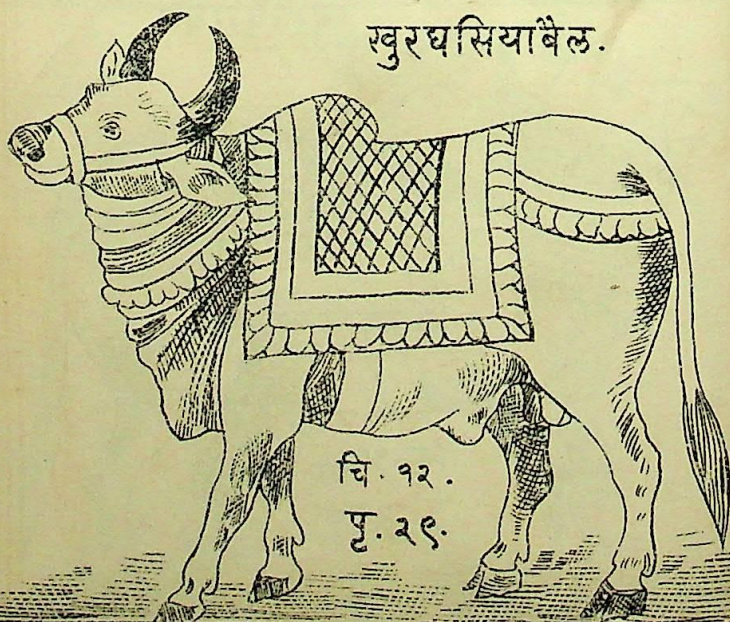 खुरघसियाबैल.
चि. १२.
पृ. २९.